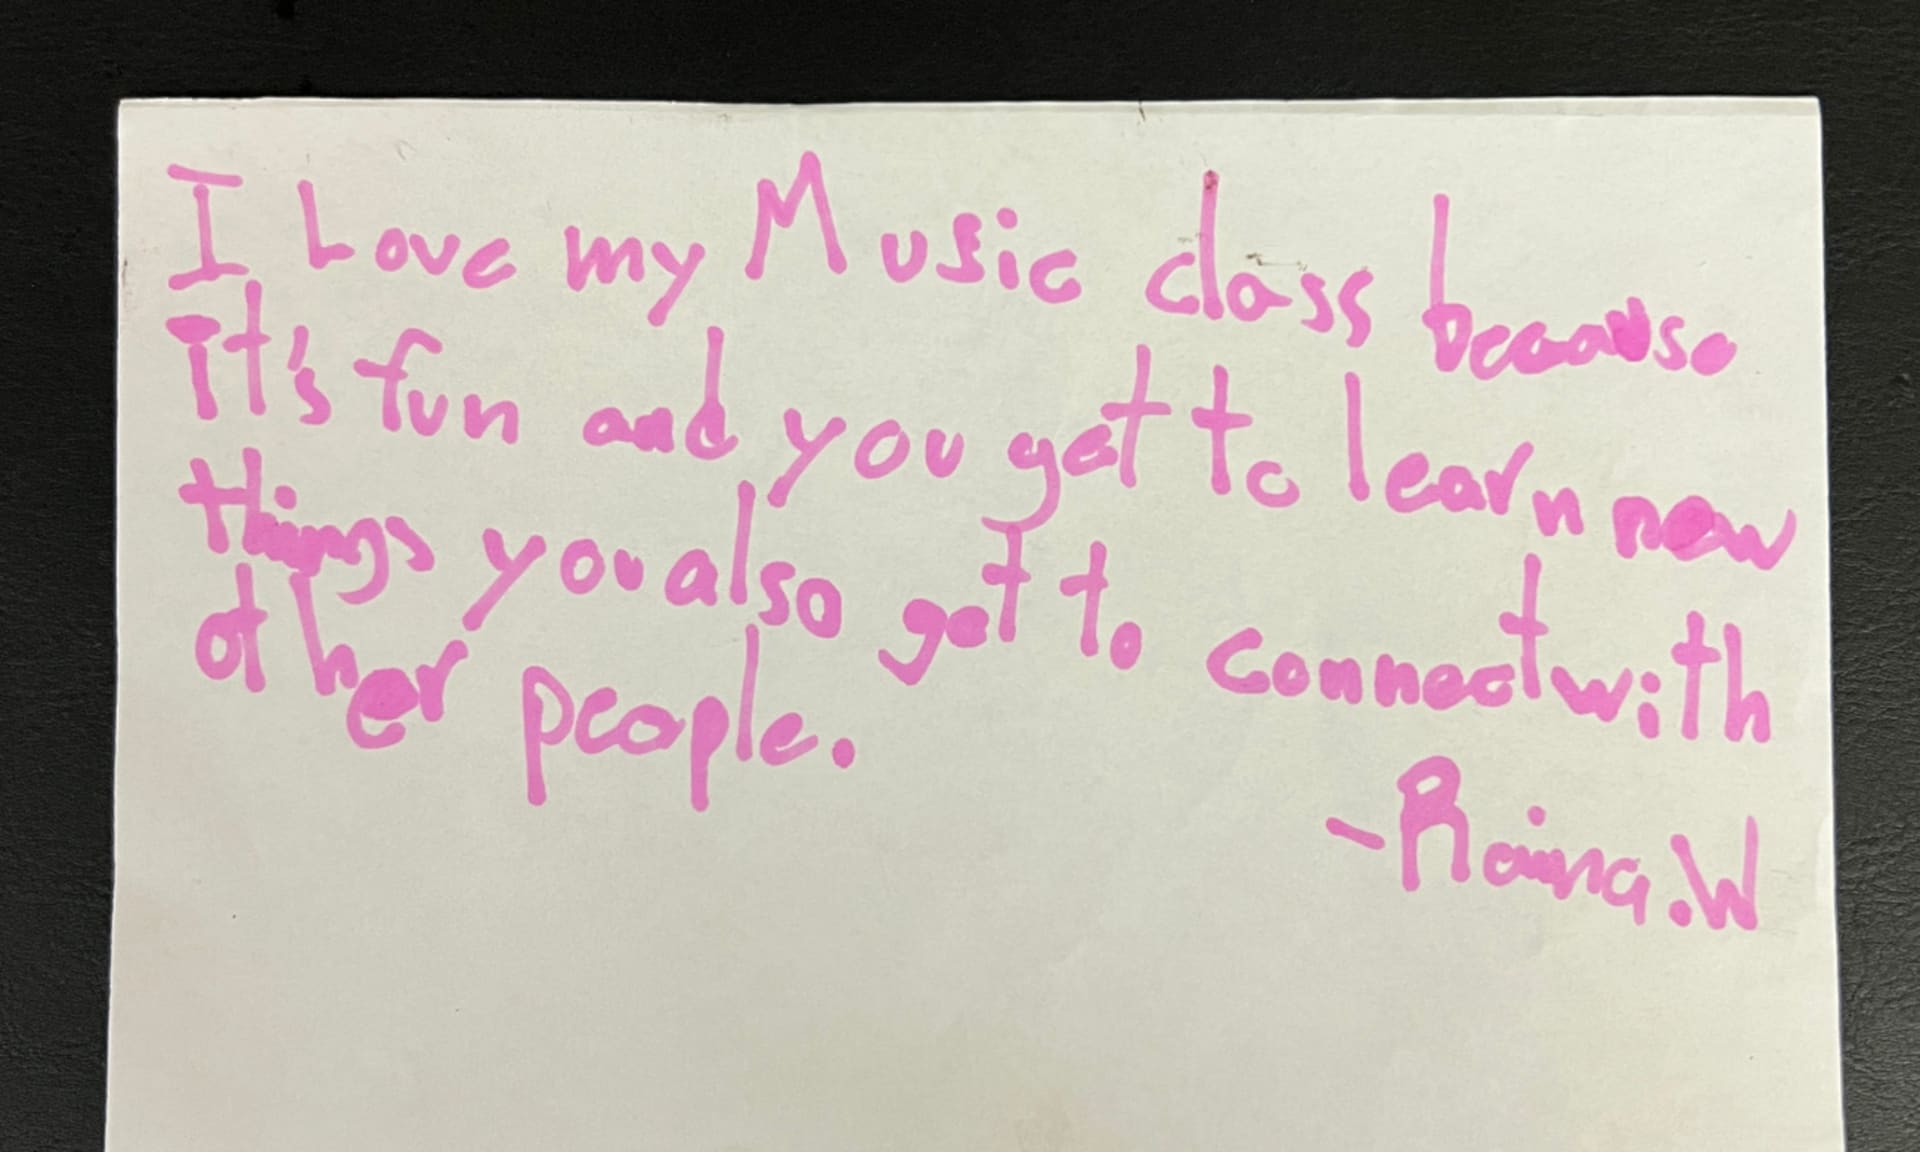 I Love my Music class because
it's fun and you get to learn new
things you also get to connect with
other people.
-Raina.W